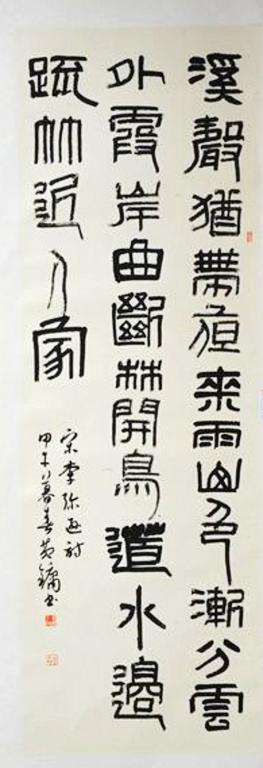 溪聲猶帶夜來雨山色漸分雲
外霞岸曲斷林開鳥道水邊
疏竹近人家
宋李弥逊詩
甲午暮春黄鏞书